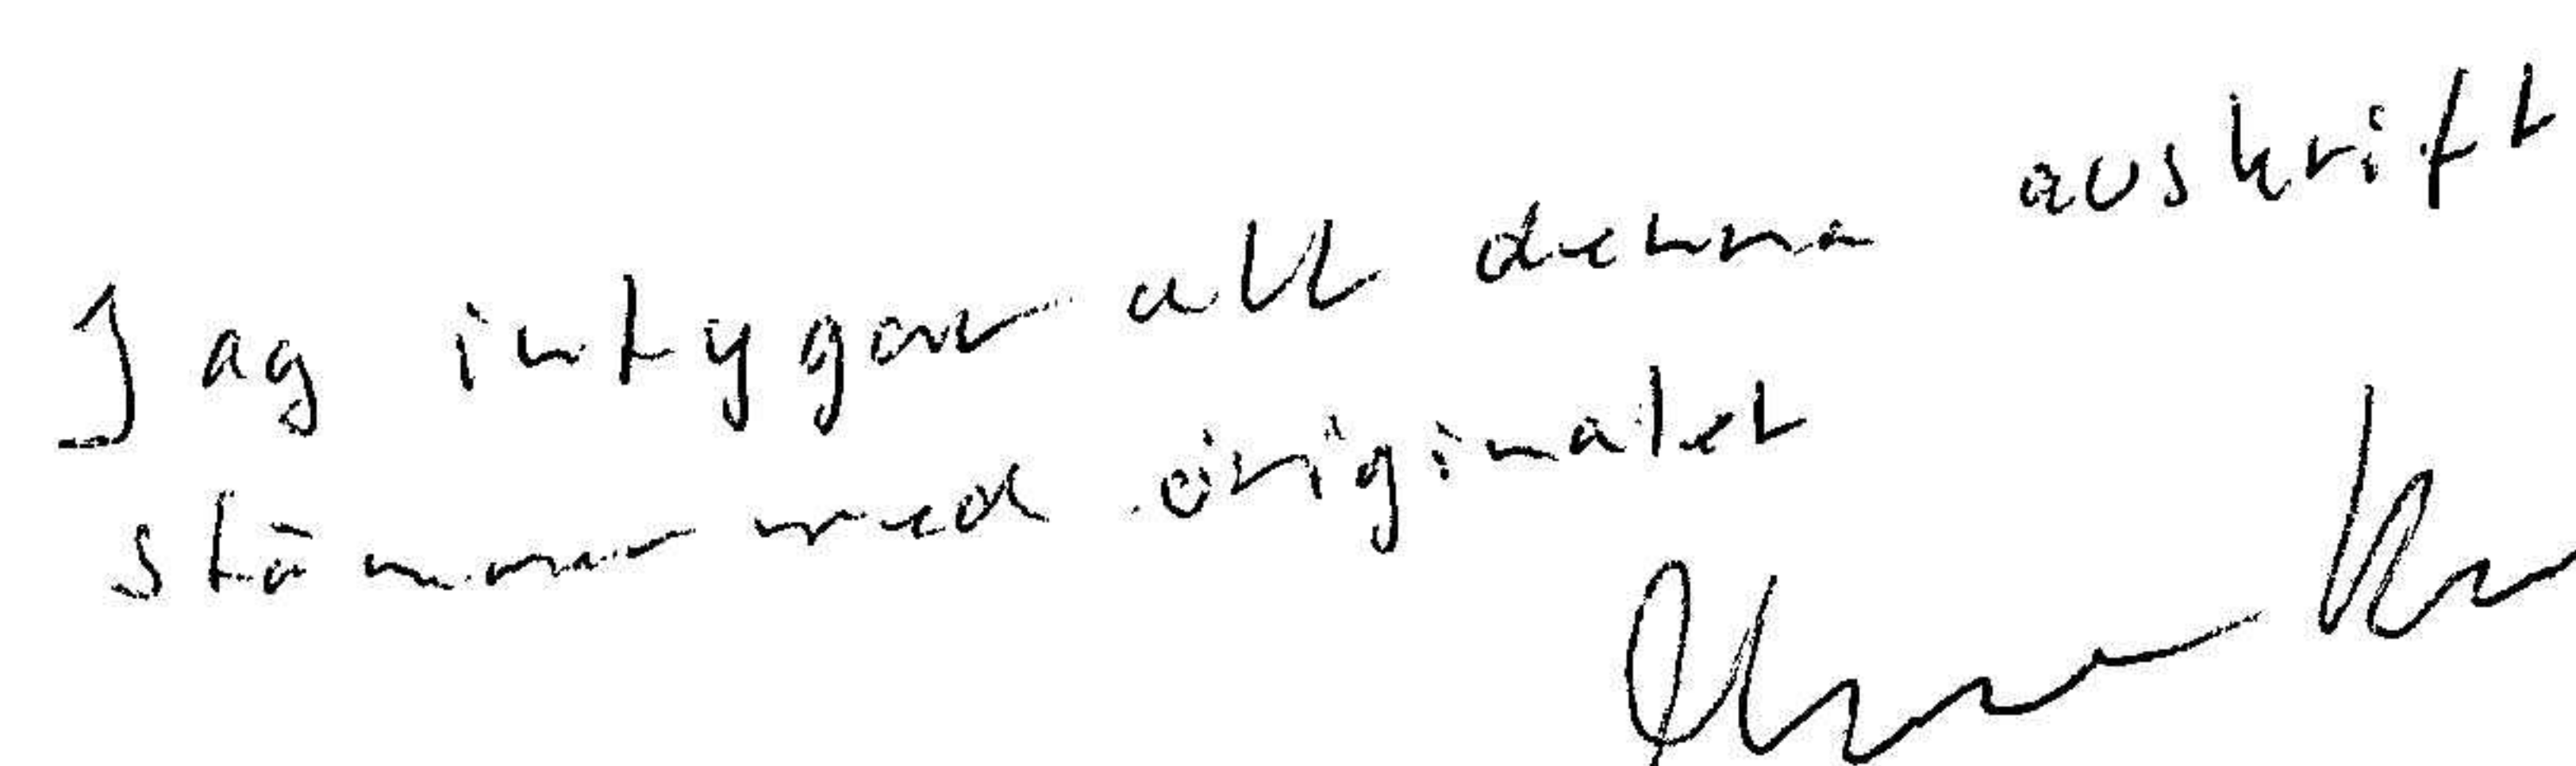 Jag intygar att denna avskrift
stämmer med originalet